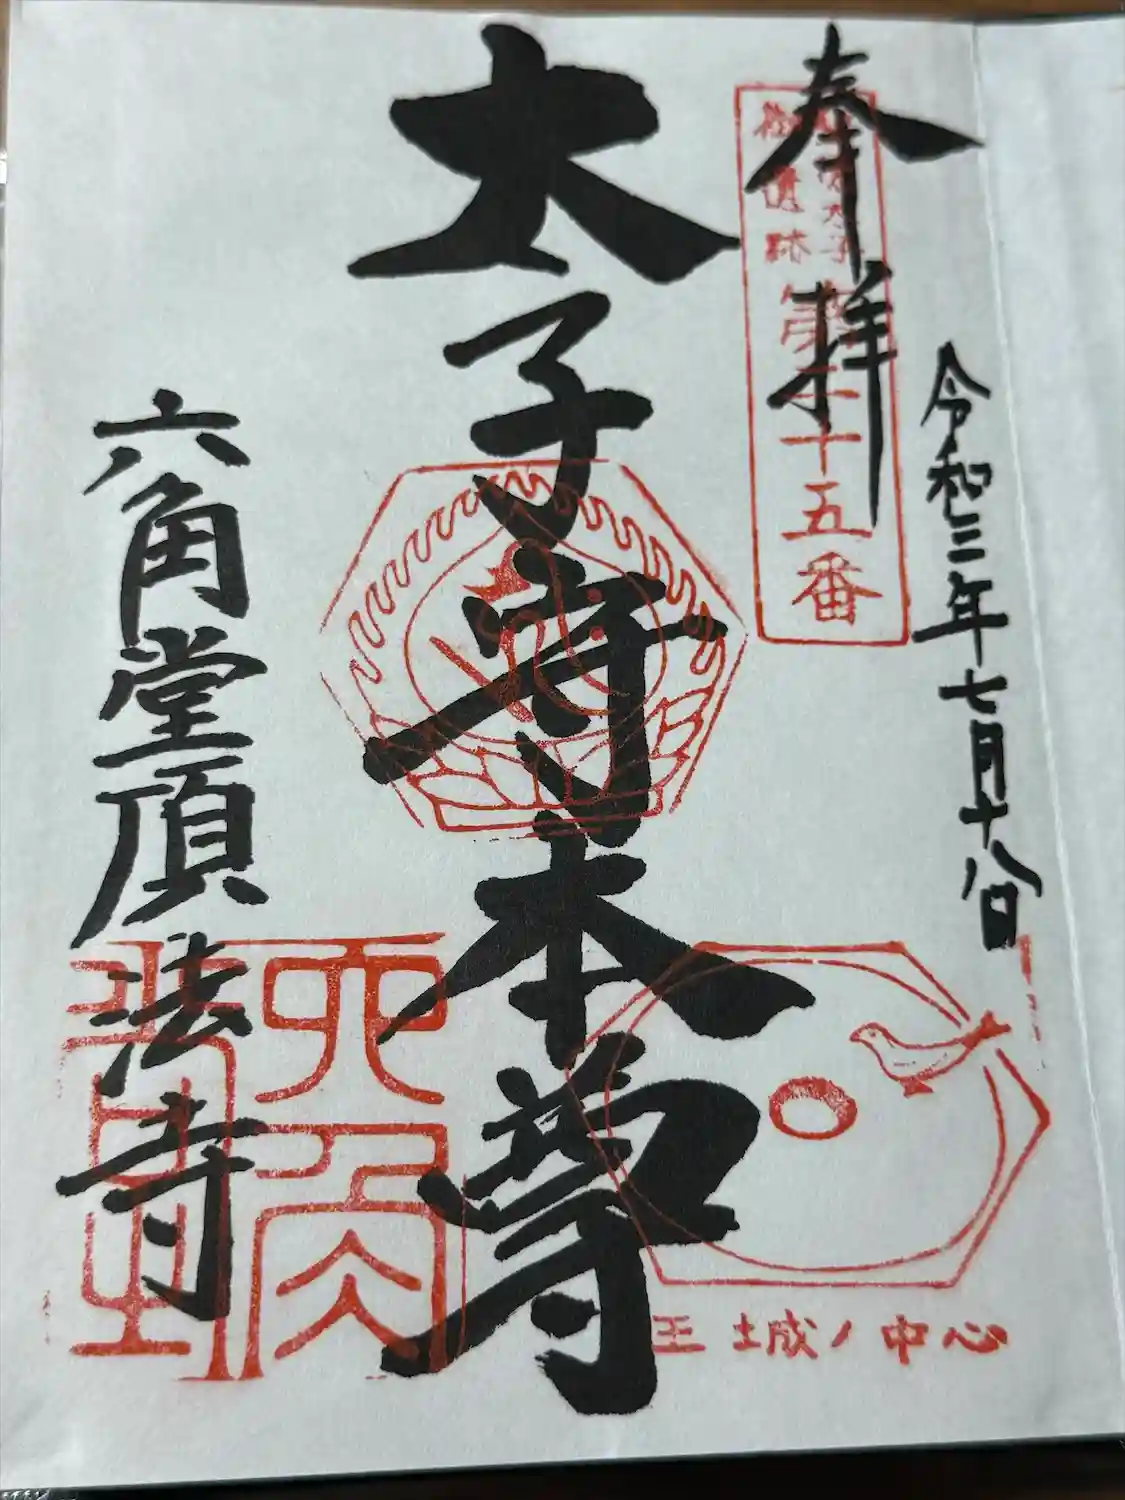 奉拝
聖徳太子
御遺跡第二十五番
令和三年七月十八日
太子守本尊
六角堂頂法寺
六角堂
王城ノ中心